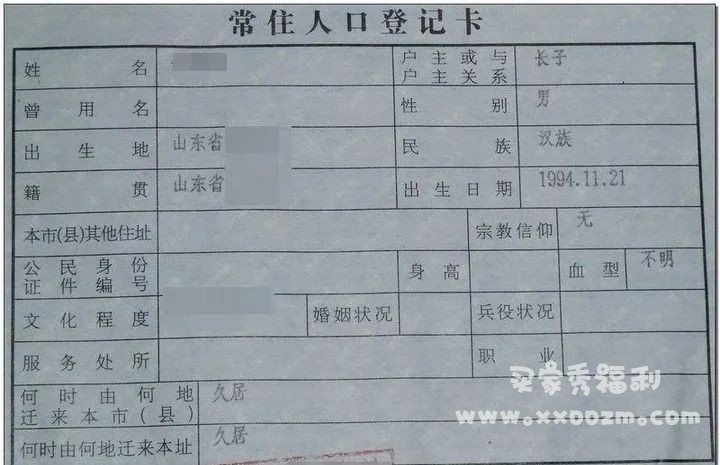 常住人口登记卡
姓名 户主或与户主关系 长子
曾用名 性别 男
出生地 山东省 民族 汉族
籍贯 山东省 出生日期 1994.11.21
本市(县)其他住址 宗教信仰 无
公民身份证件编号 身高 血型 不明
文化程度 婚姻状况 兵役状况
服务处所 职业
何时由何地迁来本市(县) 久居
何时由何地迁来本址 久居
买家秀福利
www.xxoozm.com